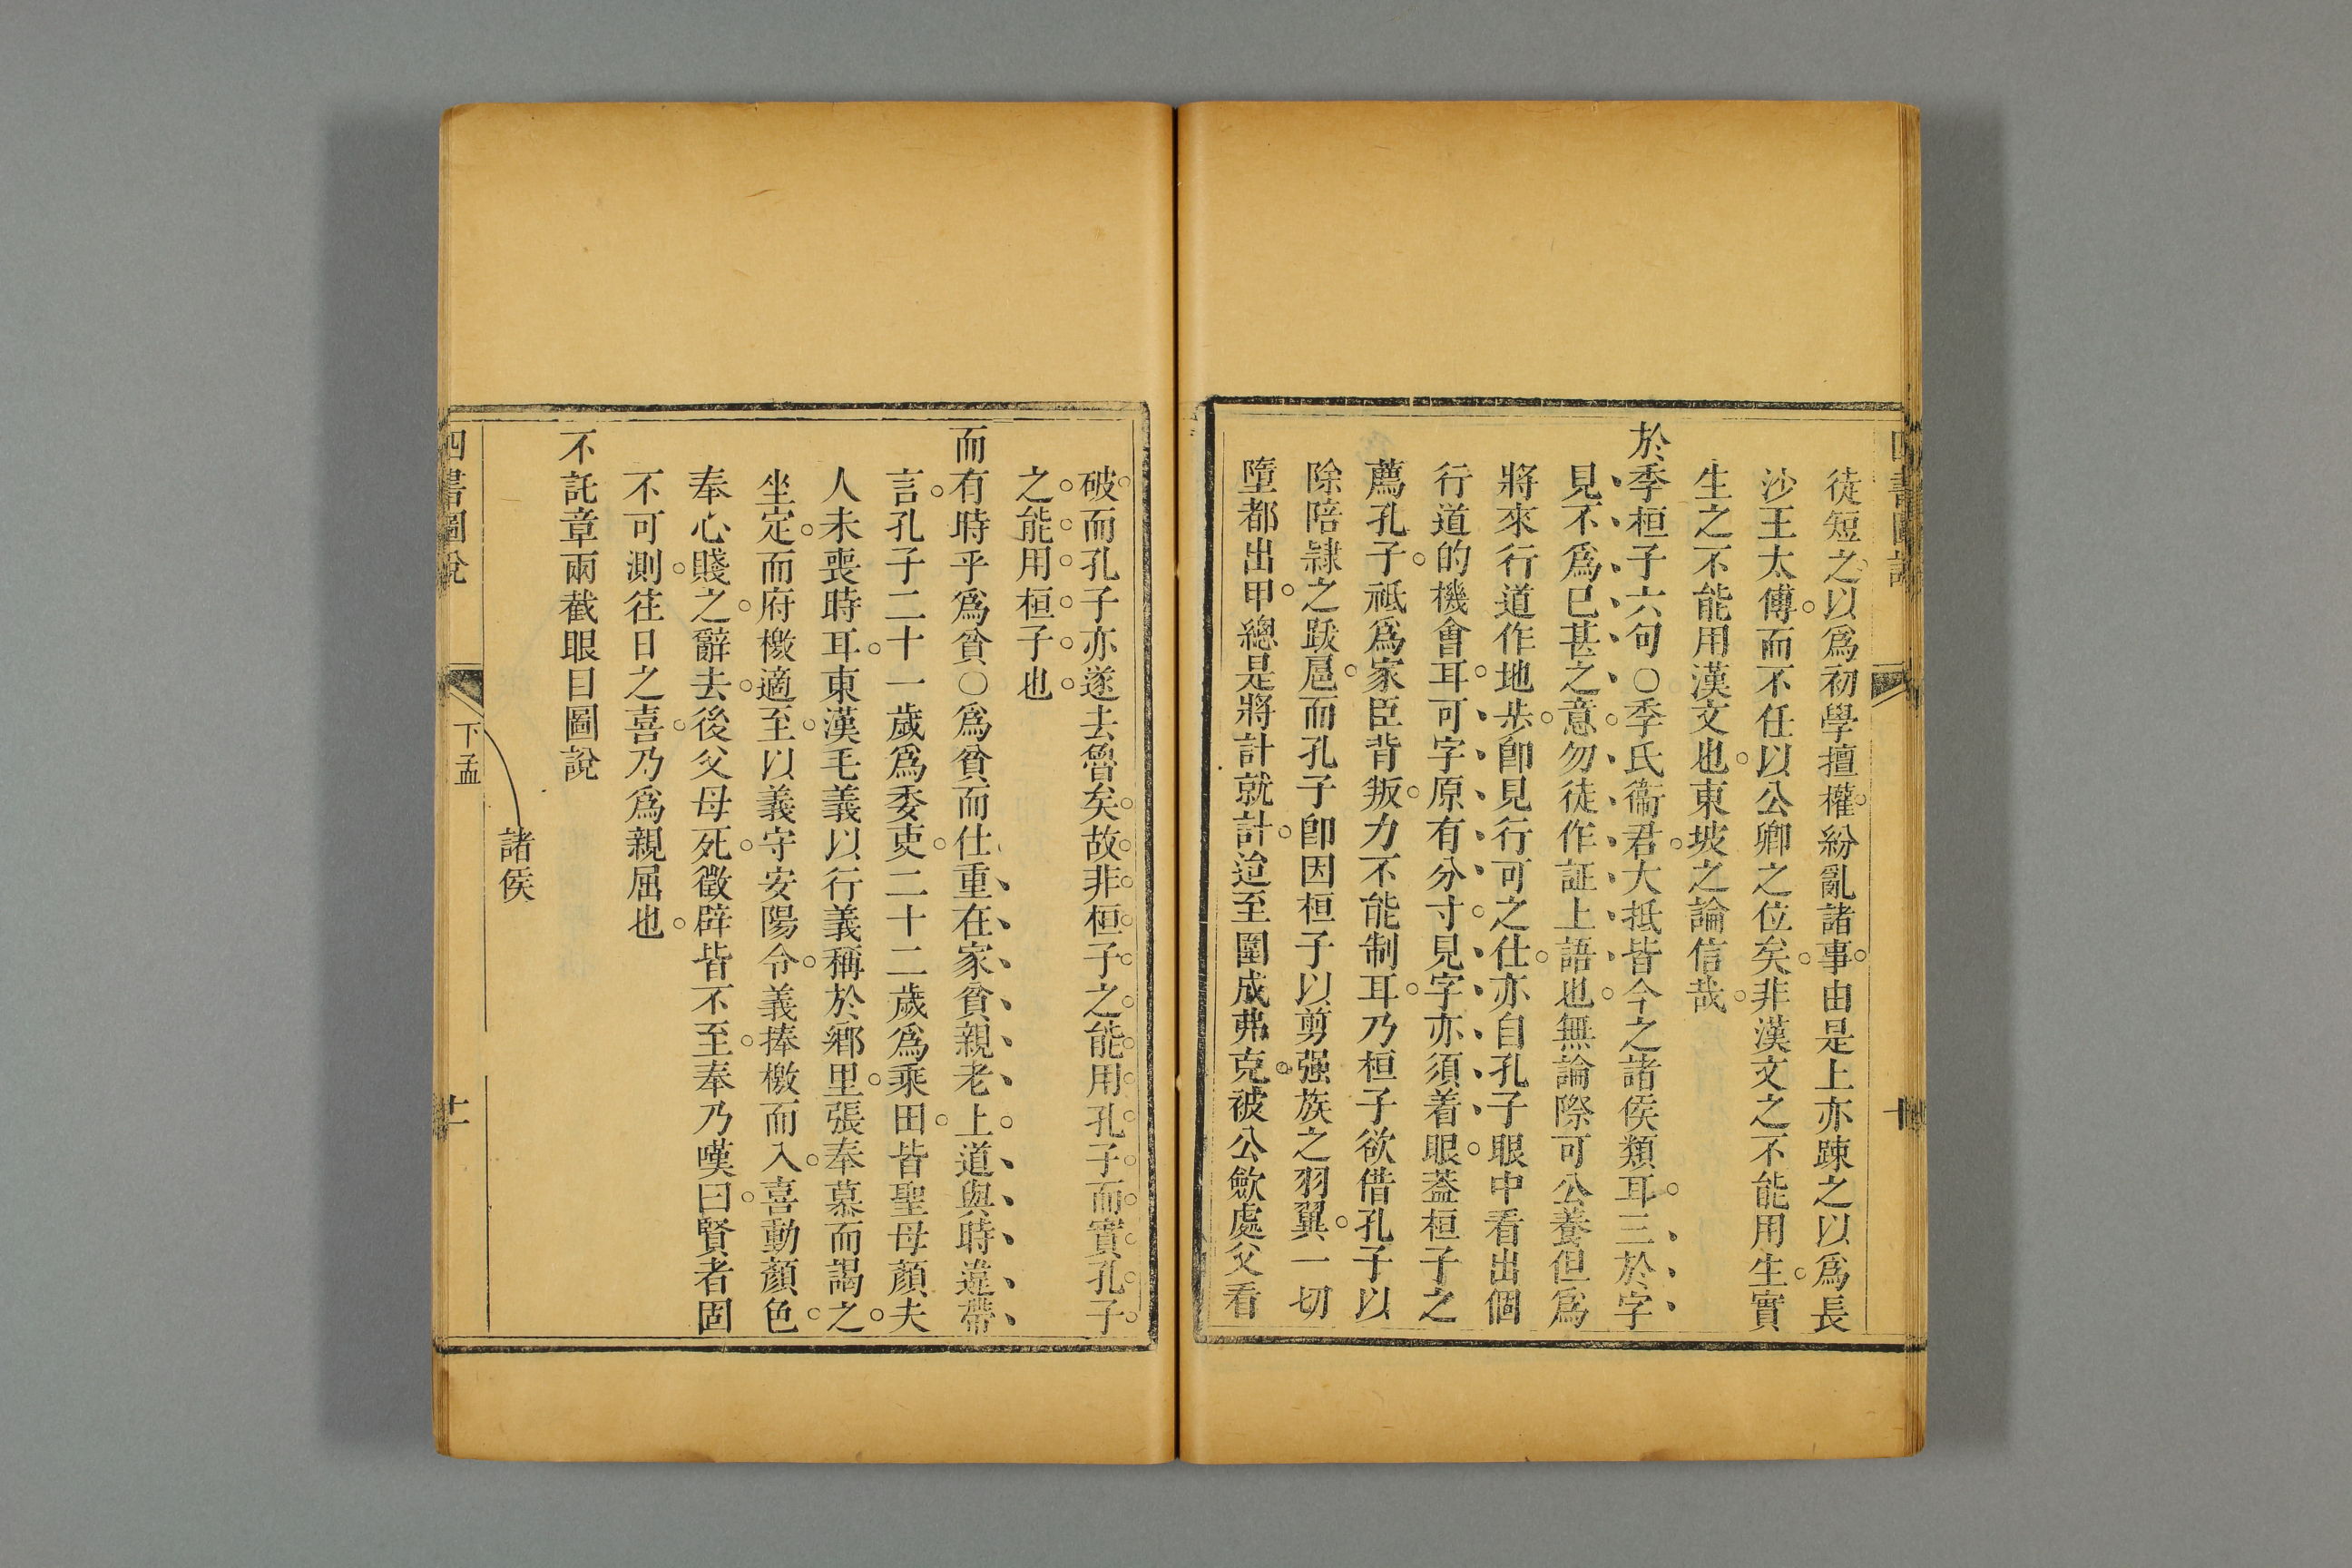 四書圖說
十
徒短之以爲初學擅權紛亂諸事由是上亦踈之以爲長
沙王太傅而不任以公卿之位矣非漢文之不能用生實
生之不能用漢文也東坡之論信哉
於季桓子六句○季氏衞君大抵皆今之諸侯類耳三於字
見不爲已甚之意勿徒作証上語也無論際可公養但爲
將來行道作地步卽見行可之仕亦自孔子眼中看出個
行道的機會耳可字原有分寸見字亦須着眼蓋桓子之
薦孔子祗爲家臣背叛力不能制耳乃桓子欲借孔子以
除陪隷之跋扈而孔子卽因桓子以剪强族之羽翼一切
墮都出甲總是將計就計迨至圍成弗克被公歛處父看
破而孔子亦遂去魯矣故非桓子之能用孔子而實孔子
之能用桓子也
而有時乎爲貧○爲貧而仕重在家貧親老上道與時違帶
言孔子二十一歲爲委吏二十二歲爲乘田皆聖母顏夫
人未喪時耳東漢毛義以行義稱於鄉里張奉慕而謁之
坐定而府檄適至以義守安陽令義捧檄而入喜動顏色
奉心賤之辭去後父母死徵辟皆不至奉乃嘆曰賢者固
不可測往日之喜乃爲親屈也
不託章兩截眼目圖說
諸侯
四書圖說
下孟
十一